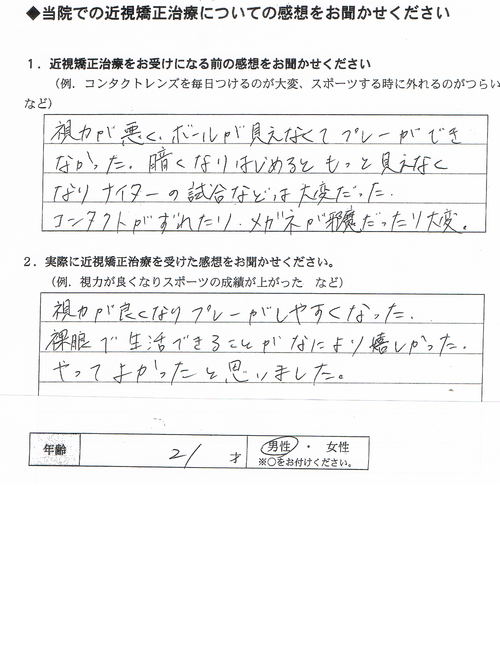 ◆当院での近視矯正治療についての感想をお聞かせください
1．近視矯正治療をお受けになる前の感想をお聞かせください
（例．コンタクトレンズを毎日つけるのが大変、スポーツする時に外れるのがつらい
など）
視力が悪く、ボールが見えなくてプレーができ
なかった。暗くなりはじめるともっと見えなく
なりナイターの試合などは大変だった。
コンタクトがずれたり、メガネが邪魔だったり大変。
2．実際に近視矯正治療を受けた感想をお聞かせください。
（例．視力が良くなりスポーツの成績が上がった　など）
視力が良くなりプレーがしやすくなった。
裸眼で生活できることがなにより嬉しかった。
やってよかったと思いました。
年齢　21　才　男性・女性
※○をお付けください。